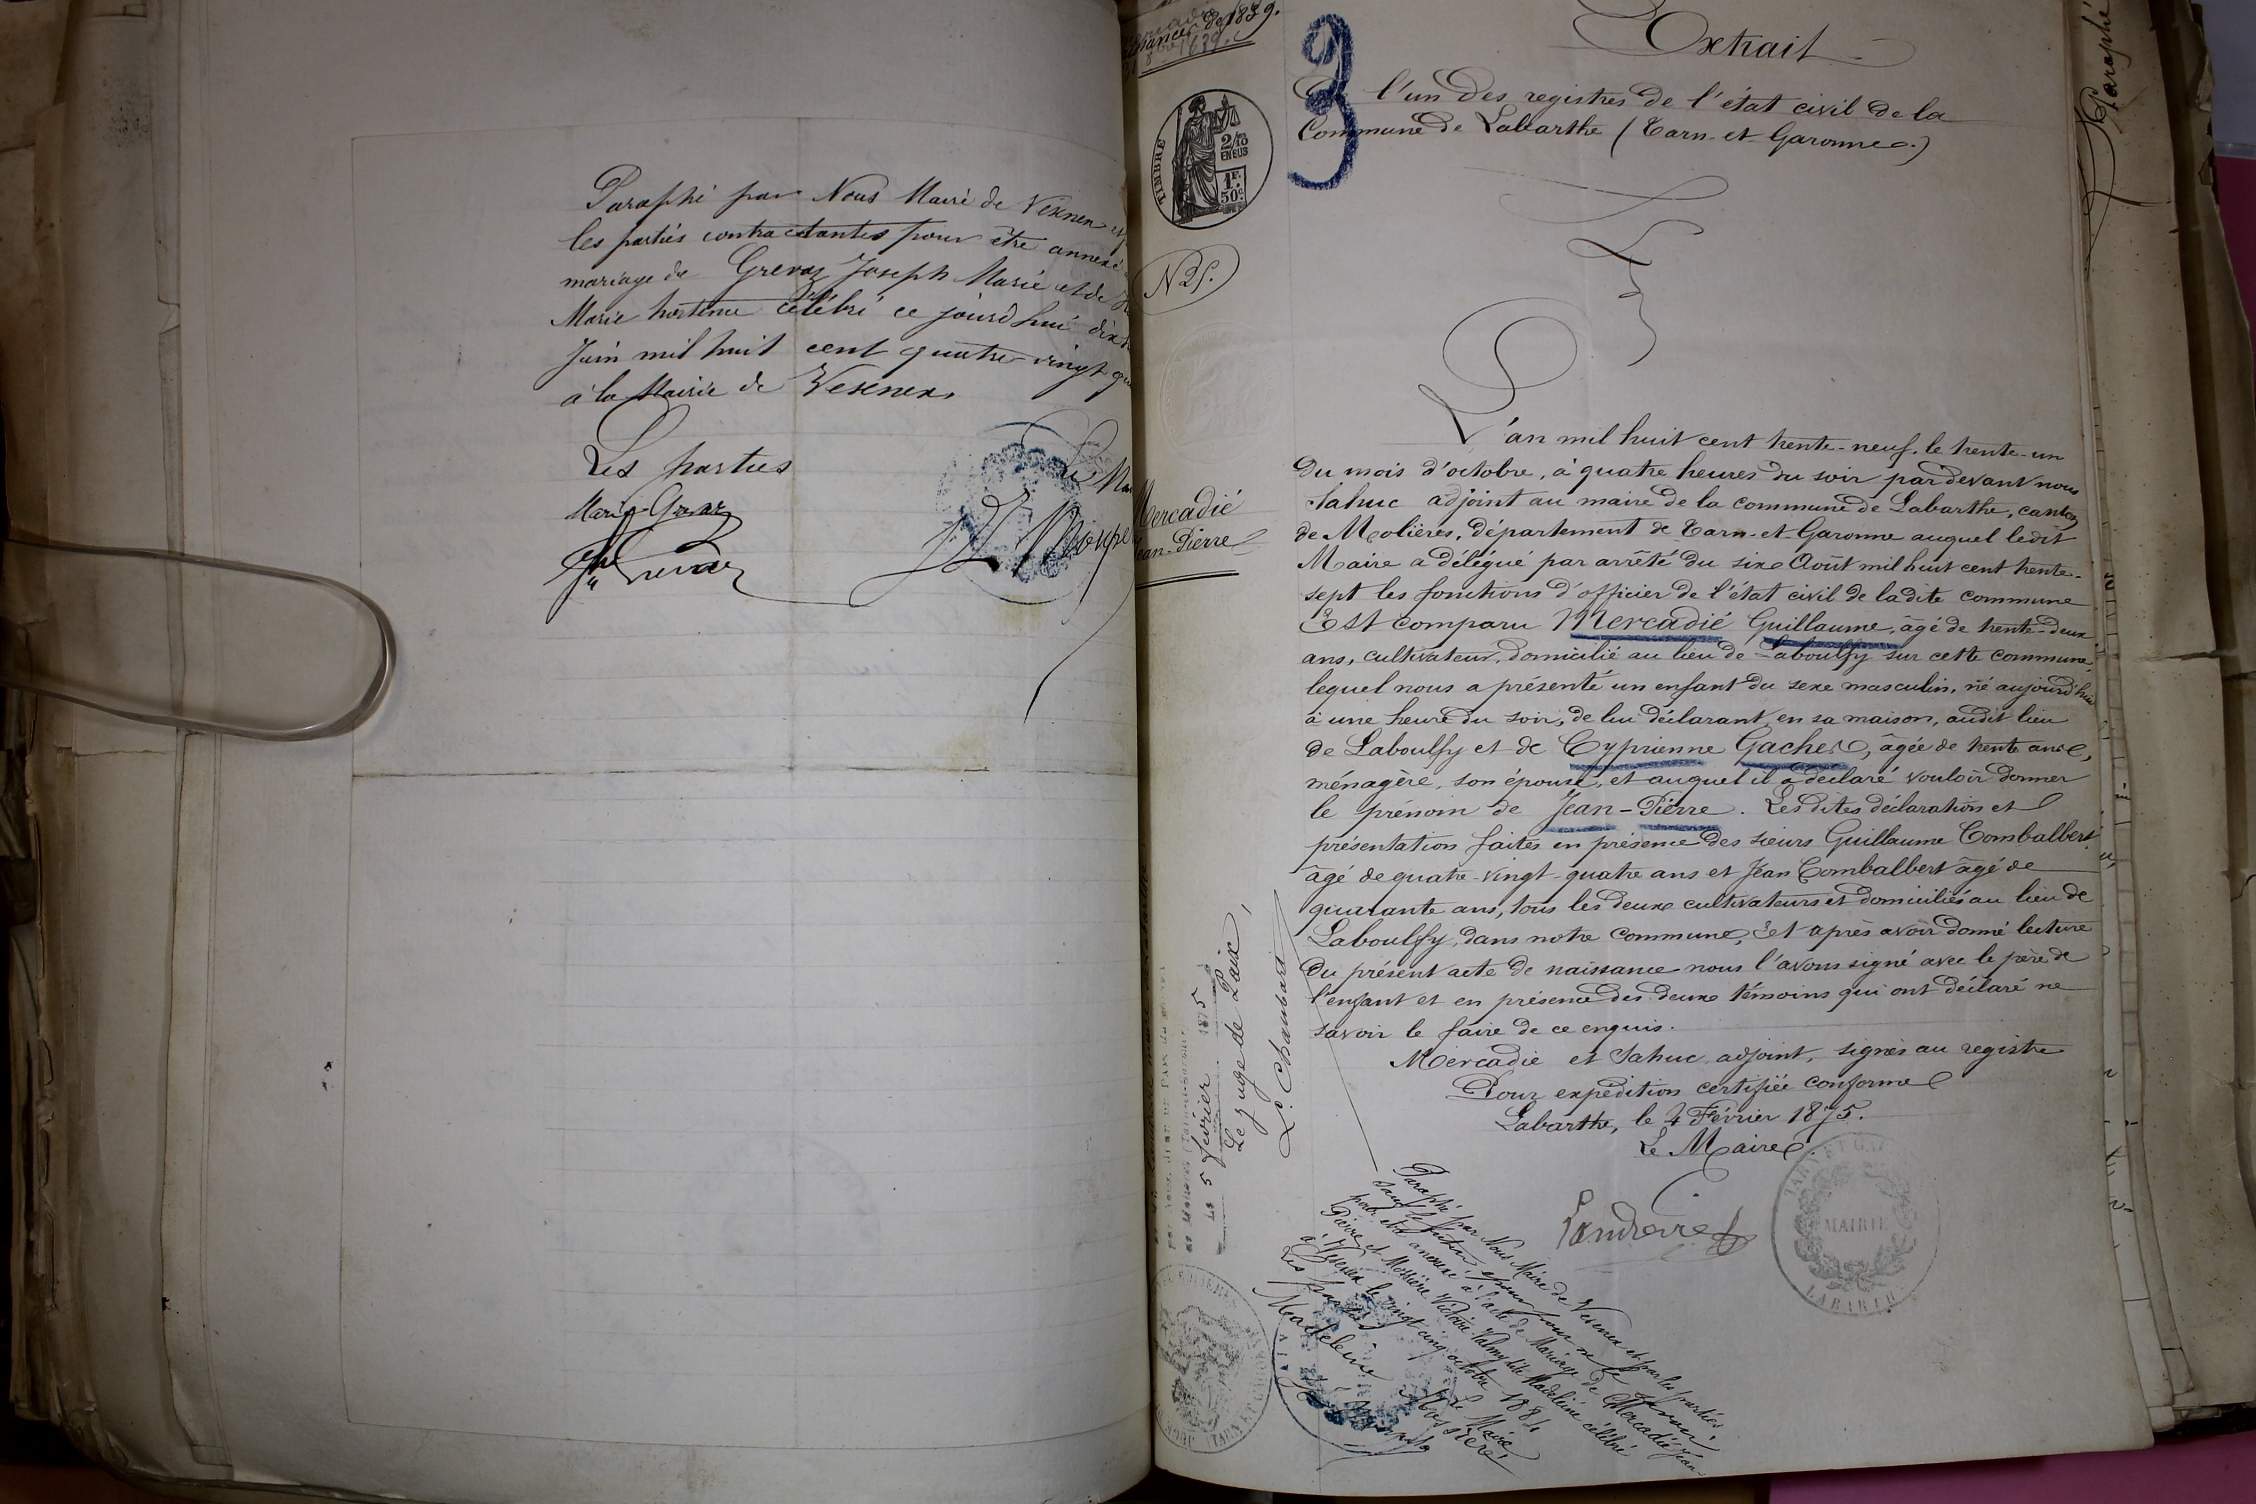 Paraphé par Nous Maire de Vesnex et
les parties contractantes pour être annexé
mariage de Grevaz Joseph Marie et de
Marie hortense célébré ce jourd'hui
Juin mil huit cent quatre-vingt
à la Mairie de Vesnex,
Les parties
Le Mai
de 1839.
TIMBRE
2/10
EN SUS
1F.
50c.
Mercadié
Jean-Pierre
5 février 1875
Le juge de Paix,
Lⁿ Chambart
3
Extrait
De l'un des registres de l'état civil de la
Commune de Labarthe (Tarn-et-Garonne.)
L'an mil huit cent trente-neuf, le trente-un
du mois d'octobre, à quatre heures du soir par devant nous
Sahuc adjoint au maire de la commune de Labarthe, canton
de Molières, département de Tarn-et-Garonne auquel ledit
Maire a délégué par arrêté du six Août mil huit cent trente-
sept les fonctions d'officier de l'état civil de ladite commune
Est comparu Mercadié Guillaume, âgé de trente-deux
ans, cultivateur, domicilié au lieu de Laboulfy sur cette commune,
lequel nous a présenté un enfant du sexe masculin, né aujourd'hui
à une heure du soir, de lui déclarant, en sa maison, audit lieu
de Laboulfy et de Cyprienne Gaches, âgée de trente ans,
ménagère, son épouse, et auquel il a déclaré vouloir donner
le prénom de Jean-Pierre. Les dites déclaration et
présentation faites en présence des sieurs Guillaume Combalbert
âgé de quatre-vingt-quatre ans et Jean Combalbert âgé de
quarante ans, tous les deux cultivateurs et domiciliés au lieu de
Laboulfy, dans notre commune, et après avoir donné lecture
du présent acte de naissance nous l'avons signé avec le père de
l'enfant et en présence des deux témoins qui ont déclaré ne
savoir le faire de ce enquis.
Mercadié et Sahuc adjoint, signés au registre
Pour expédition certifiée conforme
Labarthe, le 4 Février 1875.
Le Maire
MAIRIE
LABARTHE
Paraphé par Nous Maire de Vesnex et par les parties
pour être annexé à l'acte de Mariage de Mercadié Jean
Pierre et Mossière Victoire Valmy dite Madeleine célébré
à Vesnex le vingt cinq octobre 1884
Les parties
Le Maire
Madeleine Mossière
Paraphé